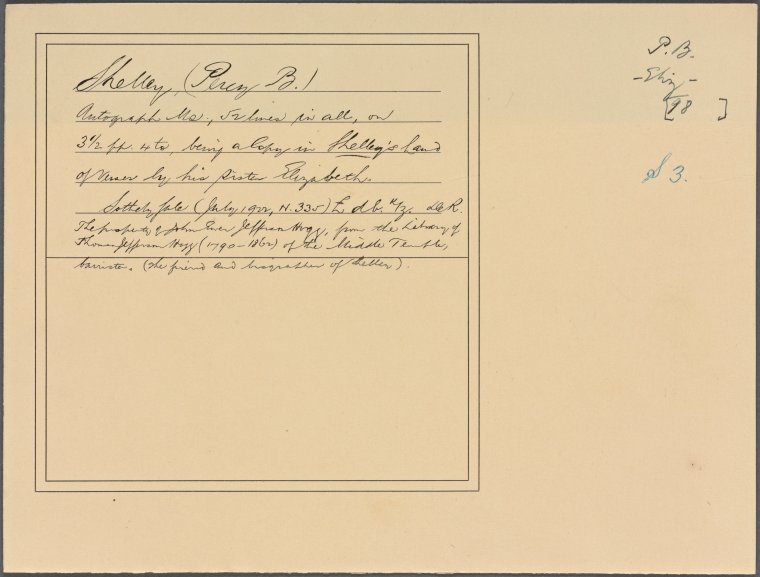 Shelley, (Percy B.)
Autograph Ms., 52 lines in all, on
3½ pp. 4to, being a Copy in Shelley's hand
of Verses by his sister Elizabeth.
Sotheby Sale (July 1922, N. 335) £
The property of John Jefferson Hogg, from the Library of
Thomas Jefferson Hogg (1790-1862) of the Middle Temple,
barrister. (the friend and biographer of Shelley).
P.B.
- Eliz -
[98 ]
S 3.